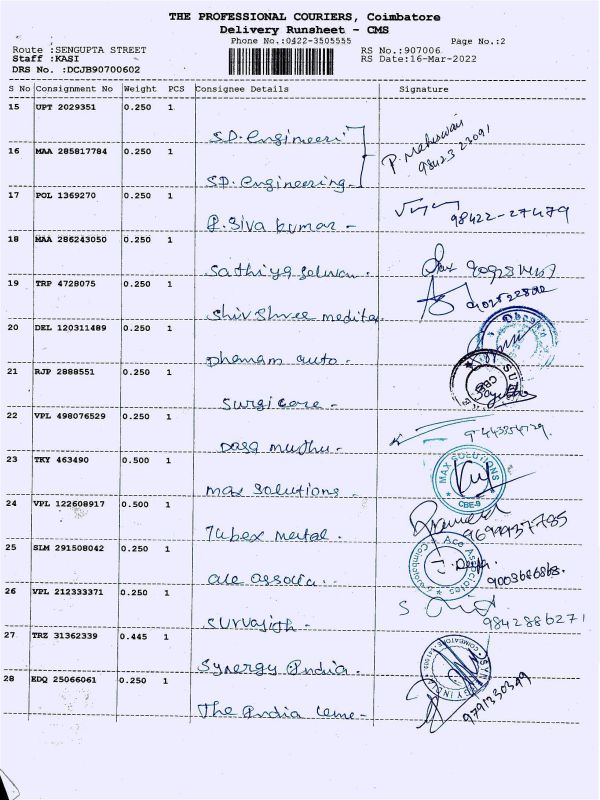 THE PROFESSIONAL COURIERS, Coimbatore
Delivery Runsheet - CMS
Phone No.:0422-3505555 Page No.:2
Route :SENGUPTA STREET RS No.:907006
Staff :KASI RS Date:16-Mar-2022
DRS No. :DCJB90700602
S No Consignment No Weight PCS Consignee Details Signature
15 UPT 2029351 0.250 1
S.D. Engineeri
16 MAA 285817784 0.250 1 P. Maheswari 98423 23091
S.D. Engineering
17 POL 1369270 0.250 1
R. Siva kumar - 98422-27479
18 MAA 286243050 0.250 1
Sathiya Selvan.
19 TRP 4728075 0.250 1
Shiv Shree medita
20 DEL 120311489 0.250 1
Dhanam auto.
21 RJP 2888551 0.250 1
Surgi care -
22 VPL 498076529 0.250 1
Dasa muthu -
23 TKY 463490 0.500 1 MAX SOLUTIONS
max solutions. CBE-9
24 VPL 122608917 0.500 1
Tubex metal.
25 SLM 291508042 0.250 1 Ace Associates
ace associa.. Coimbatore
26 VPL 212333371 0.250 1
Survajith. 9842886271
27 TRZ 31362339 0.445 1
Synergy India.
28 EDQ 25066061 0.250 1
The India ceme - 9791330349